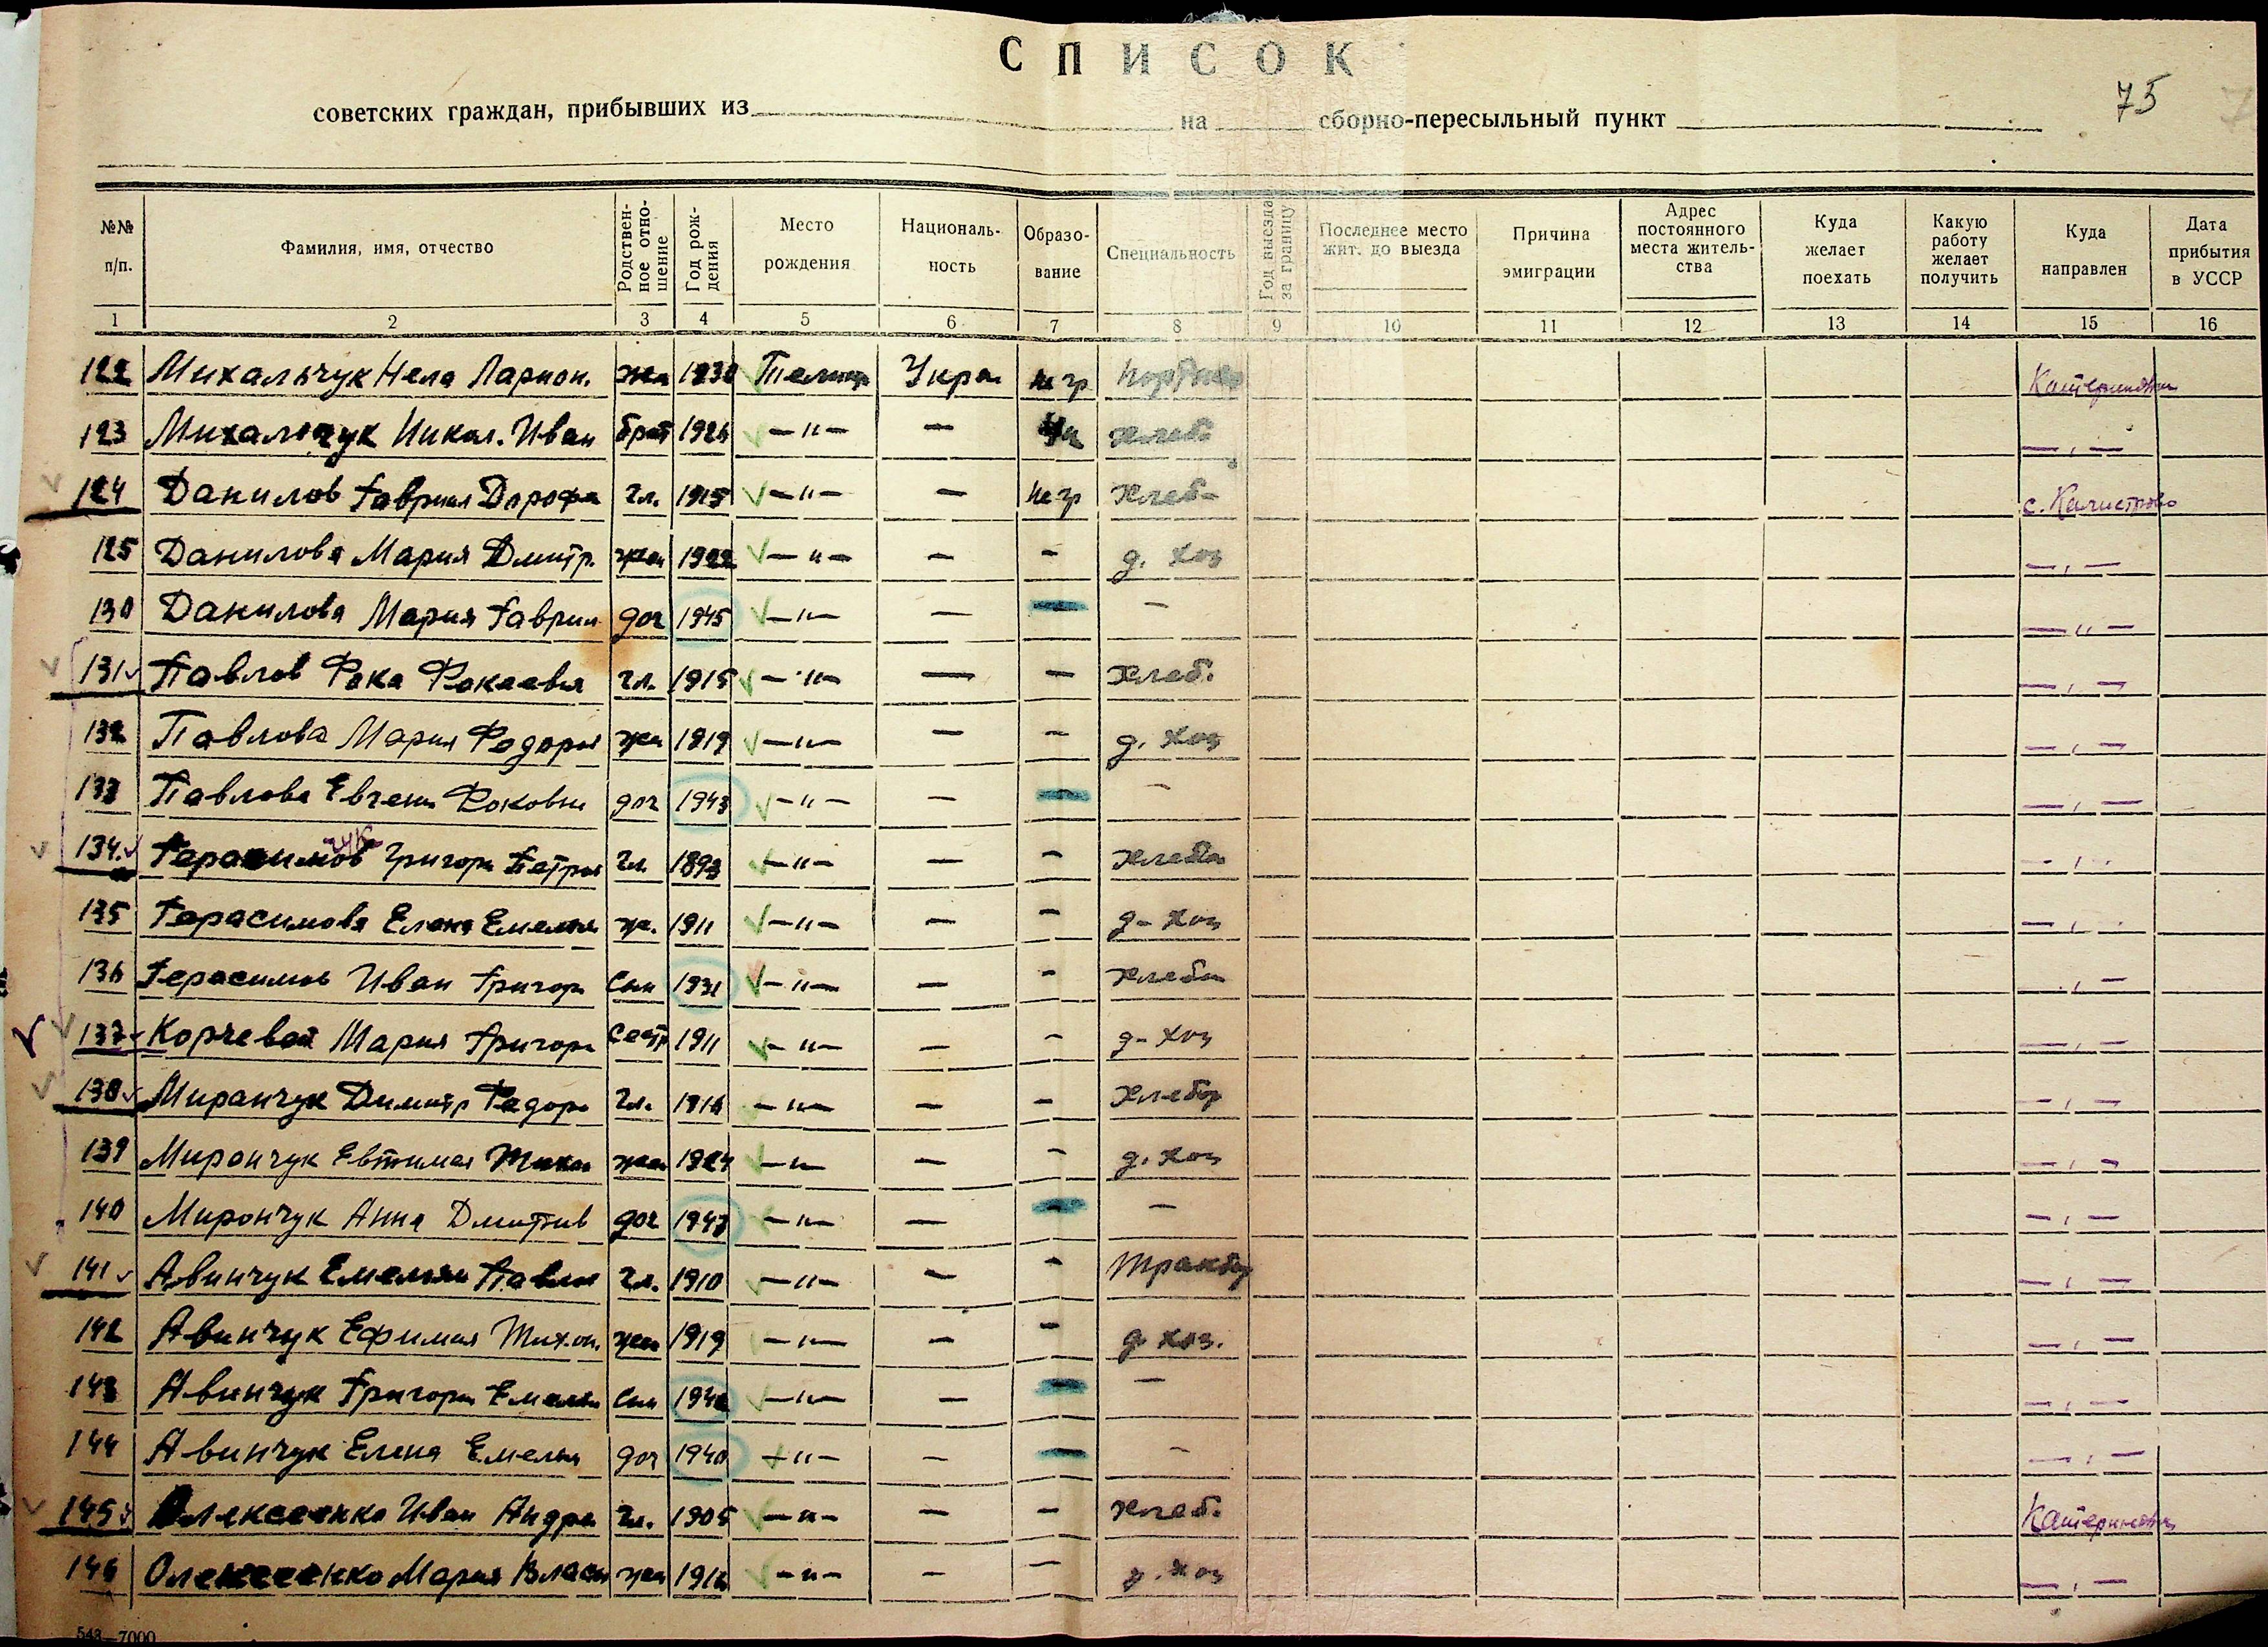 СПИСОК
75
советских граждан, прибывших из на сборно-пересыльный пункт
№№ п/п. Фамилия, имя, отчество Родствен-ное отно-шение Год рож-дения Место рождения Националь-ность Образо-вание Специальность Год выезда за границу Последнее место жит. до выезда Причина эмиграции Адрес постоянного места житель-ства Куда желает поехать Какую работу желает получить Куда направлен Дата прибытия в УССР
1 2 3 4 5 6 7 8 9 10 11 12 13 14 15 16
122 Михальчук Нела Ларион. жен 1930 Укра негр
123 Михальчук Никол. Иван брат 1926 —"— — хлеб — " —
124 Данилов Гаврил Дорофе гл. 1915 —"— — негр хлеб- с. Калистрово
125 Данилова Мария Дмитр. жен 1922 —"— — - д. хоз — " —
130 Данилова Мария Гаврил доч 1945 —"— — — — " —
131 Павлов Фока Фокаевич гл. 1915 —"— — — хлеб. — " —
132 Павлова Мария Федоров жен 1919 —"— — - д. хоз — " —
133 Павлова Евгени Фоковн доч 1943 —"— — — — " —
134. Герасимов чук Григори Петров гл. 1893 —"— — - хлебо — " —
135 Герасимова Елена Емелья ж. 1911 —"— — - д-хоз — " —
136 Герасимов Иван Григор сын 1931 —"— — - хлебо — " —
137 Корчевой Мария Григор сестр 1911 —"— — - д-хоз — " —
138 Мирончук Димитр Федор гл. 1916 —"— — - хлебор — " —
139 Мирончук Евтимия Тихон жен 1924 —"— — - д. хоз — " —
140 Мирончук Анна Дмитрив доч 1943 —"— — — — " —
141 Авинчук Емельян Павлов гл. 1910 —"— — - — " —
142 Авинчук Ефимия Тихон. жен 1919 —"— — - д хоз. — " —
143 Авинчук Григори Емельян сын 1942 —"— — — — " —
144 Авинчук Елена Емелья доч 1940 —"— — - — " —
145 Олексеенко Иван Андре гл. 1905 —"— — - хлеб. Катериновка
146 Олексеенко Мария Власи жен 1912 —"— — — д. хоз — " —
548—7000